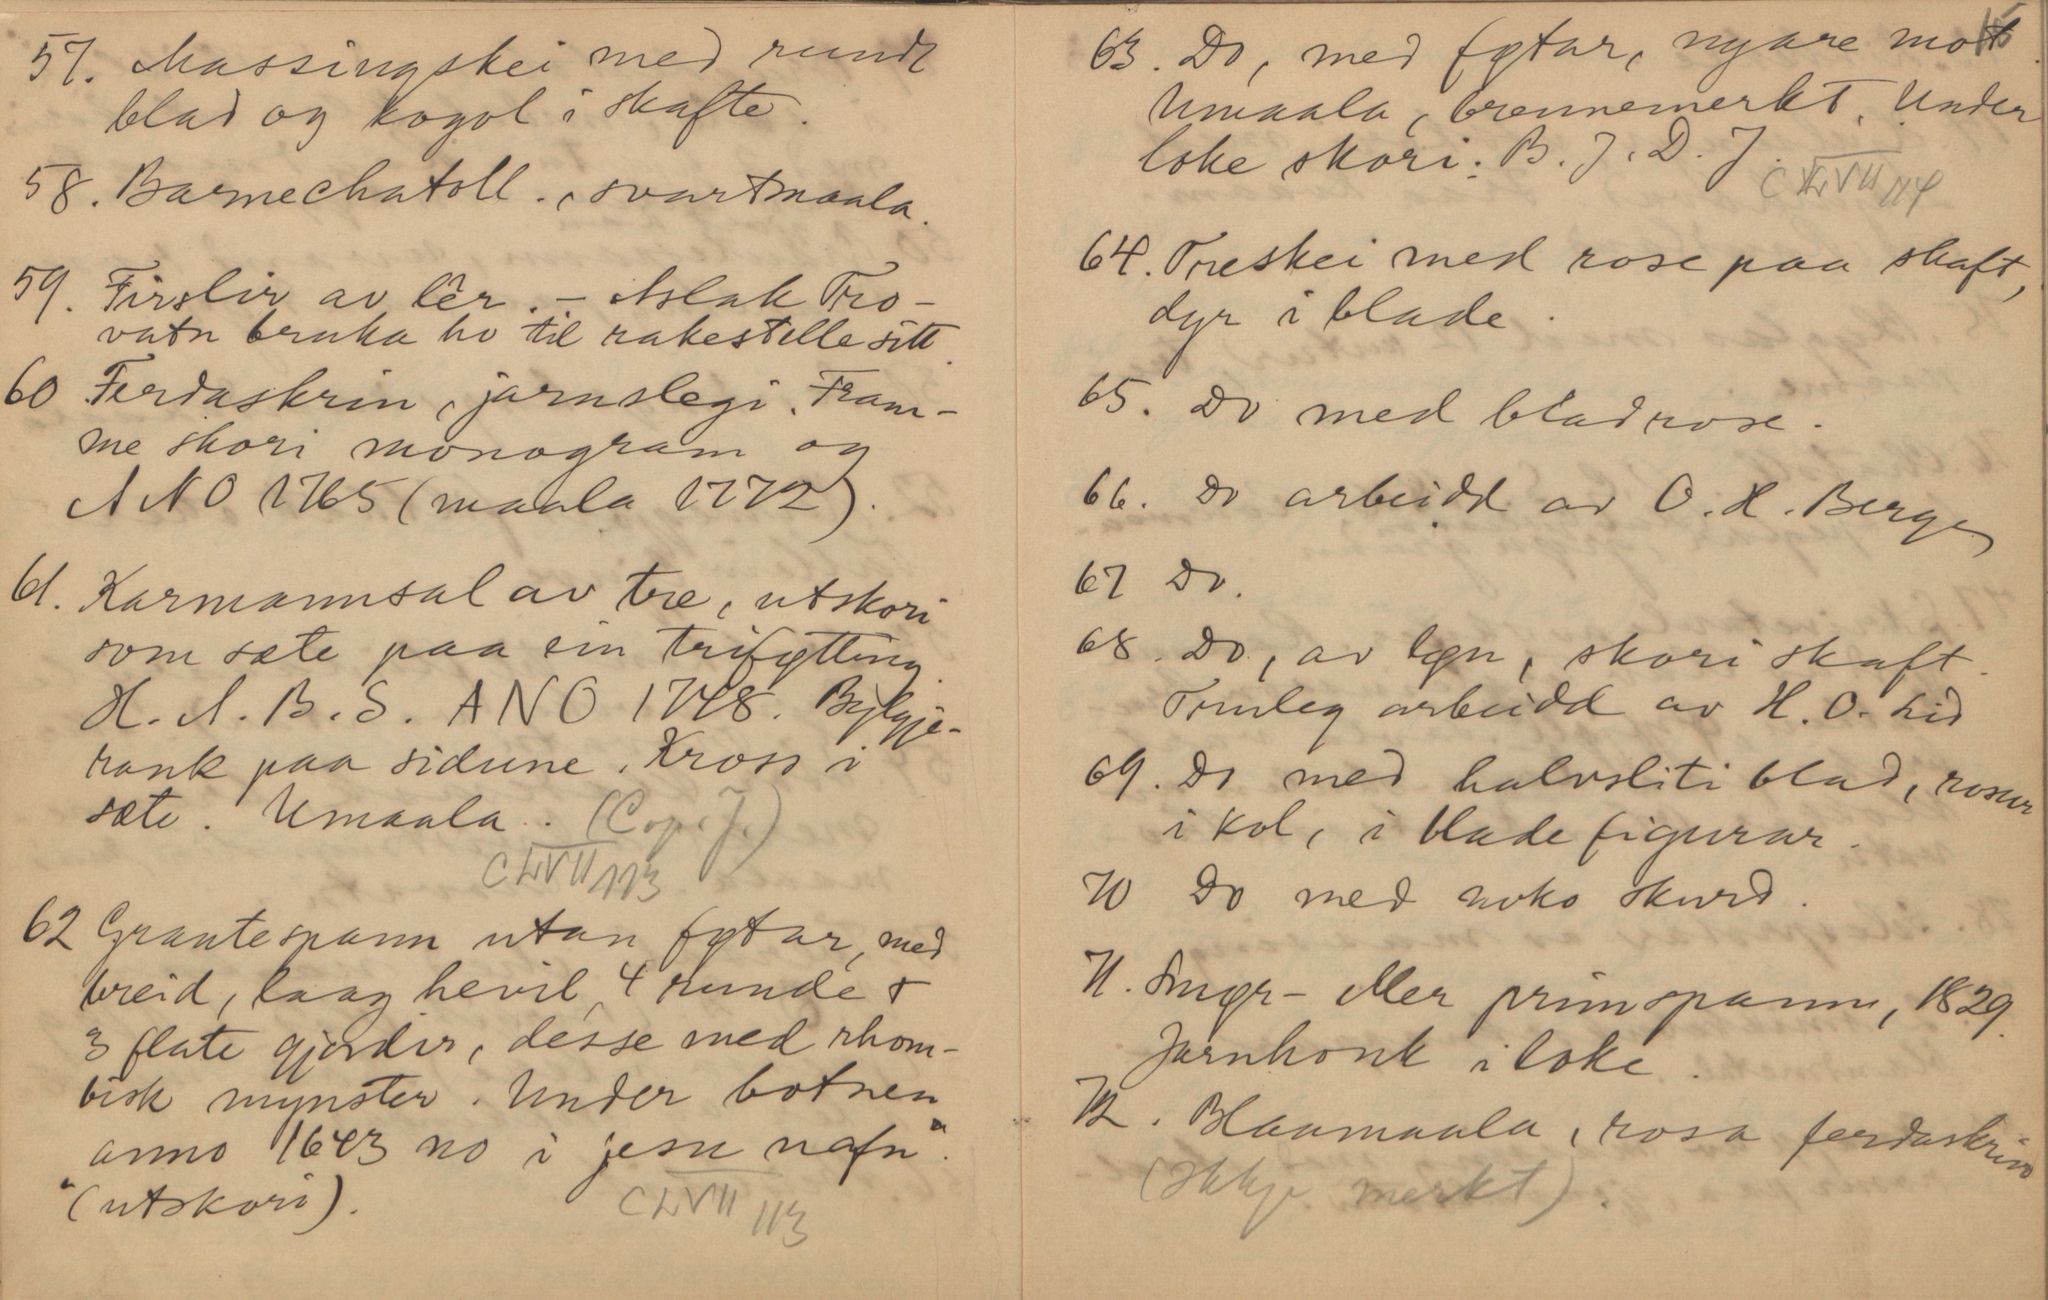 57. Massingskei med rundt
blad og kogol i skafte.
58. Barnechatoll., svartmaala.
59. Firslir av lêr. – Aslak Tro-
vatn bruka ho til rakestelle sitt.
60 Ferdaskrin, jarnslegi. Fram-
me skori monogram og
ANO 1765 (maala 1772).
61. Karmannsal av tre, utskori
som sæte paa ein trifytting
H. A. B. S. ANO 1748. Bylgje-
rank paa sidune. Kross i
sæte. Umaala. (Cop. J.)
CLVII 113
62 Grautespann utan føtar, med
breid, laag hevil, 4 runde &
3 flate gjørdir, desse med rhom-
bisk mynster. Under botnen
anno 1643 no i jesu nafn"
"(utskori).
CLVII 113
15
63. Do, med føtar, nyare mot.
Umaala, brennemerkt. Under
loke skori: B. J. D. J.
CLVII 114
64. Treskei med rose paa skaft,
dyr i blade.
65. Do med bladrose.
66. Do arbeidd av O. H. Berge
67 Do.
68. Do, av løn, skori skaft.
Truleg arbeidd av H. O. Lid
69. Do med halvsliti blad, rosur
i kol, i blade figurar.
70 Do med noko skurd.
71. Smør- eller primspann, 1829.
Jarnhonk i loke.
72. Blaamaala, rosa ferdaskrin
(Ikkje merkt).